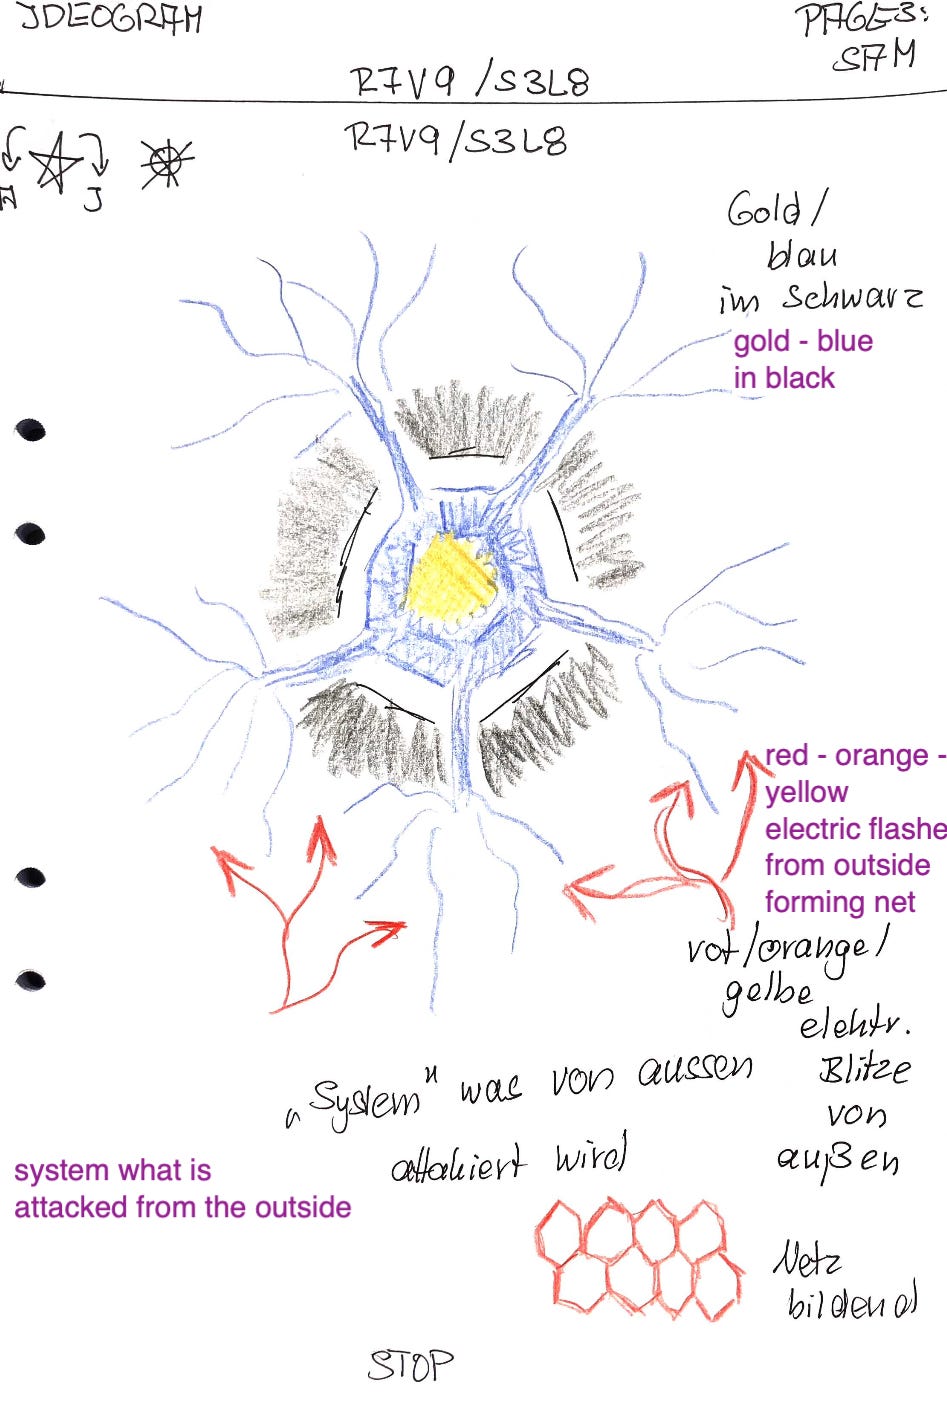 IDEOGRAM
PAGE3:
SAM
R7V9 /S3L8
R7V9/S3L8
J
Gold/
blau
im Schwarz
gold - blue
in black
red - orange -
yellow
electric flashe
from outside
forming net
rot/orange/
gelbe
elektr.
Blitze
von
außen
„System" was von aussen
attakiert wird
system what is
attacked from the outside
Netz
bildend
STOP